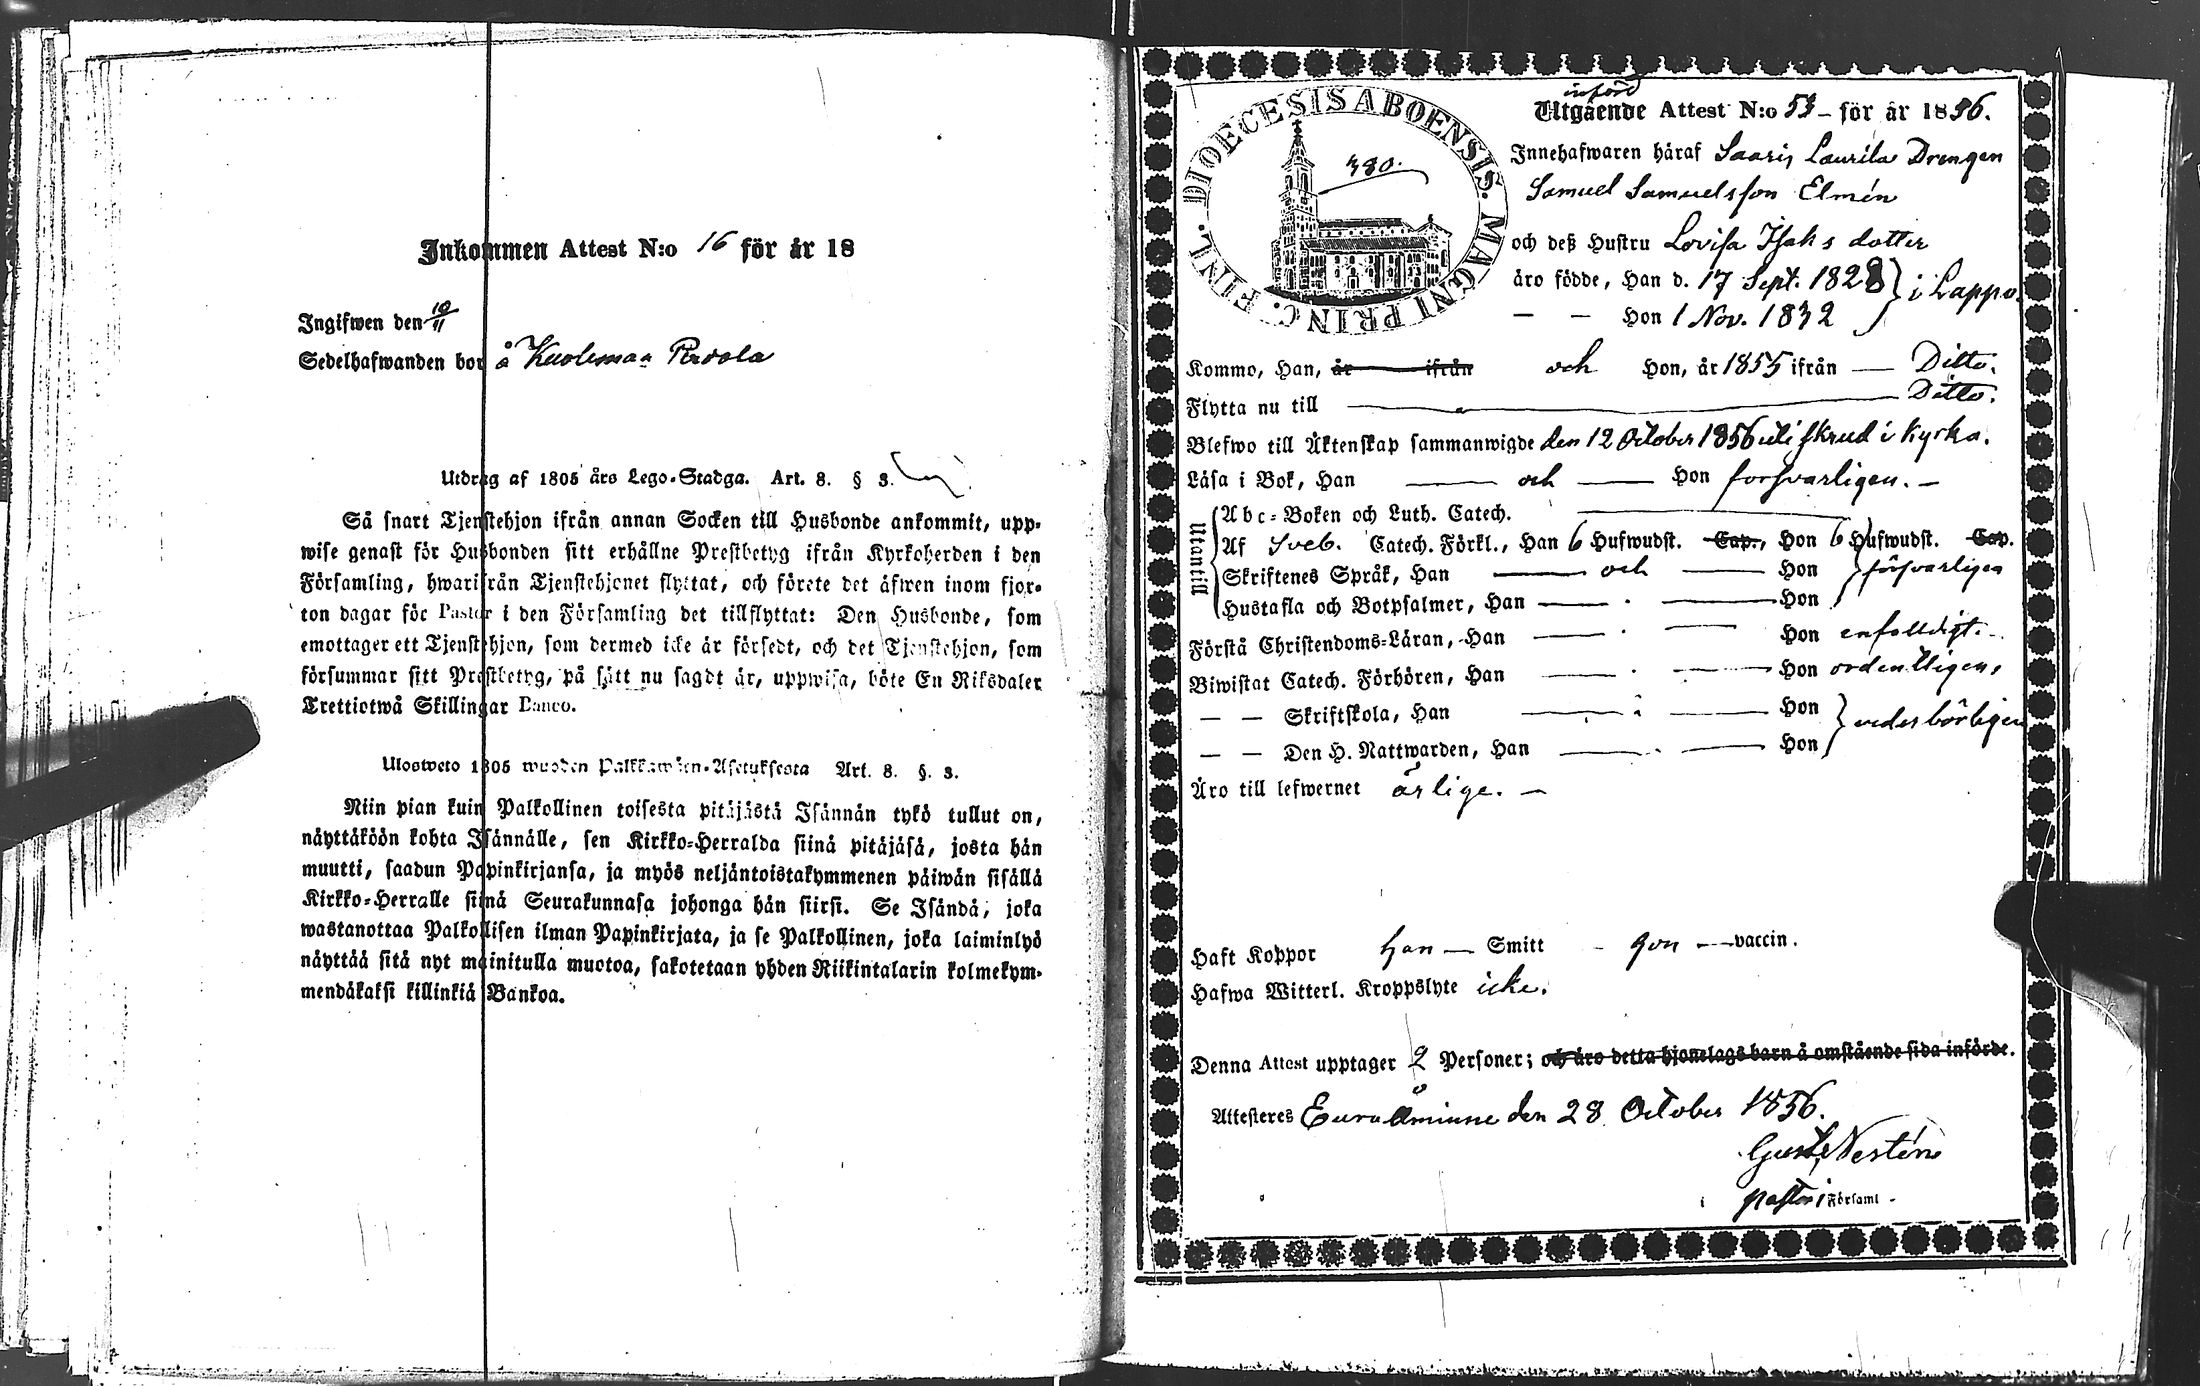 Inkommen Attest N:o 16 för år 18
Ingifwen den 10/11
Sedelhafwanden bor å Kuolemaa
Utdrag af 1805 års Lego-Stadga. Art. 8. § 3.
Så snart Tjenstehjon ifrån annan Socken till Husbonde ankommit, upp-
wise genast för Husbonden sitt erhållne Prestbetyg ifrån Kyrkoherden i den
Församling, hwarifrån Tjenstehjonet flyttat, och förete det äfwen inom fjor-
ton dagar för Pastor i den Församling det tillflyttat: Den Husbonde, som
emottager ett Tjenstehjon, som dermed icke är försedt, och det Tjenstehjon, som
försummar sitt Prestbetyg, på sätt nu sagdt är, uppwisa, böte En Riksdaler
Trettiotwå Skillingar Banco.
Ulosweto 1805 wuoden Palkkawäen-Asetuksesta Art. 8. §. 3.
Niin pian kuin Palkollinen toisesta pitäjästä Isännän tykö tullut on,
näyttäköön kohta Isännälle, sen Kirkko-Herralda siinä pitäjäsä, josta hän
muutti, saadun Papinkirjansa, ja myös neljäntoistakymmenen päiwän sisällä
Kirkko-Herralle siinä Seurakunnasa johonga hän siirsi. Se Isändä, joka
wastanottaa Palkollisen ilman Papinkirjata, ja se Palkollinen, joka laiminlyö
näyttää sitä nyt mainitulla muotoa, sakotetaan yhden Riikintalarin kolmekym-
mendäkaksi killinkiä Bankoa.
DIOECESIS ABOENSIS. MAGNI PRINC. FINL.
380.
införd
Utgående Attest N:o 53 – för år 1856.
Innehafwaren häraf Saaris Laurila Drengen
Samuel Samuelsson Elmén
och deß Hustru Lovisa Isaks dotter
äro födde, Han d. 17 Sept. 1828 } i Lappo.
— — Hon 1 Nov. 1832
Kommo, Han, år ifrån och Hon, år 1855 ifrån — Ditto.
Flytta nu till — Ditto.
Blefwo till Äktenskap sammanwigde den 12 October 1856 uti skrud i Kyrka.
Läsa i Bok, Han — och — Hon forsvarligen. —
Utantill
Abc-Boken och Luth. Catech.
Af Sveb. Catech. Förkl., Han 6 Hufwudst. Cap., Hon 6 Hufwudst. Cap.
Skriftenes Språk, Han — och — Hon } försvarligen
Hustafla och Botpsalmer, Han — Hon
Förstå Christendoms-Läran, Han — Hon enfalldigt. –
Biwistat Catech. Förhören, Han — Hon ordentligen,
— — Skriftskola, Han — Hon } vederbörligen
— — Den H. Nattwarden, Han — Hon
Äro till lefwernet ärlige. —
Haft Koppor Han — Smitt – Hon — vaccin.
Hafwa Witterl. Kroppslyte icke.
Denna Attest upptager 2 Personer; och äro detta hjonelags barn å omstående sida införde.
Attesteres Euraåminne den 28 October 1856.
Gust. Nestén
Pastor i Församl.